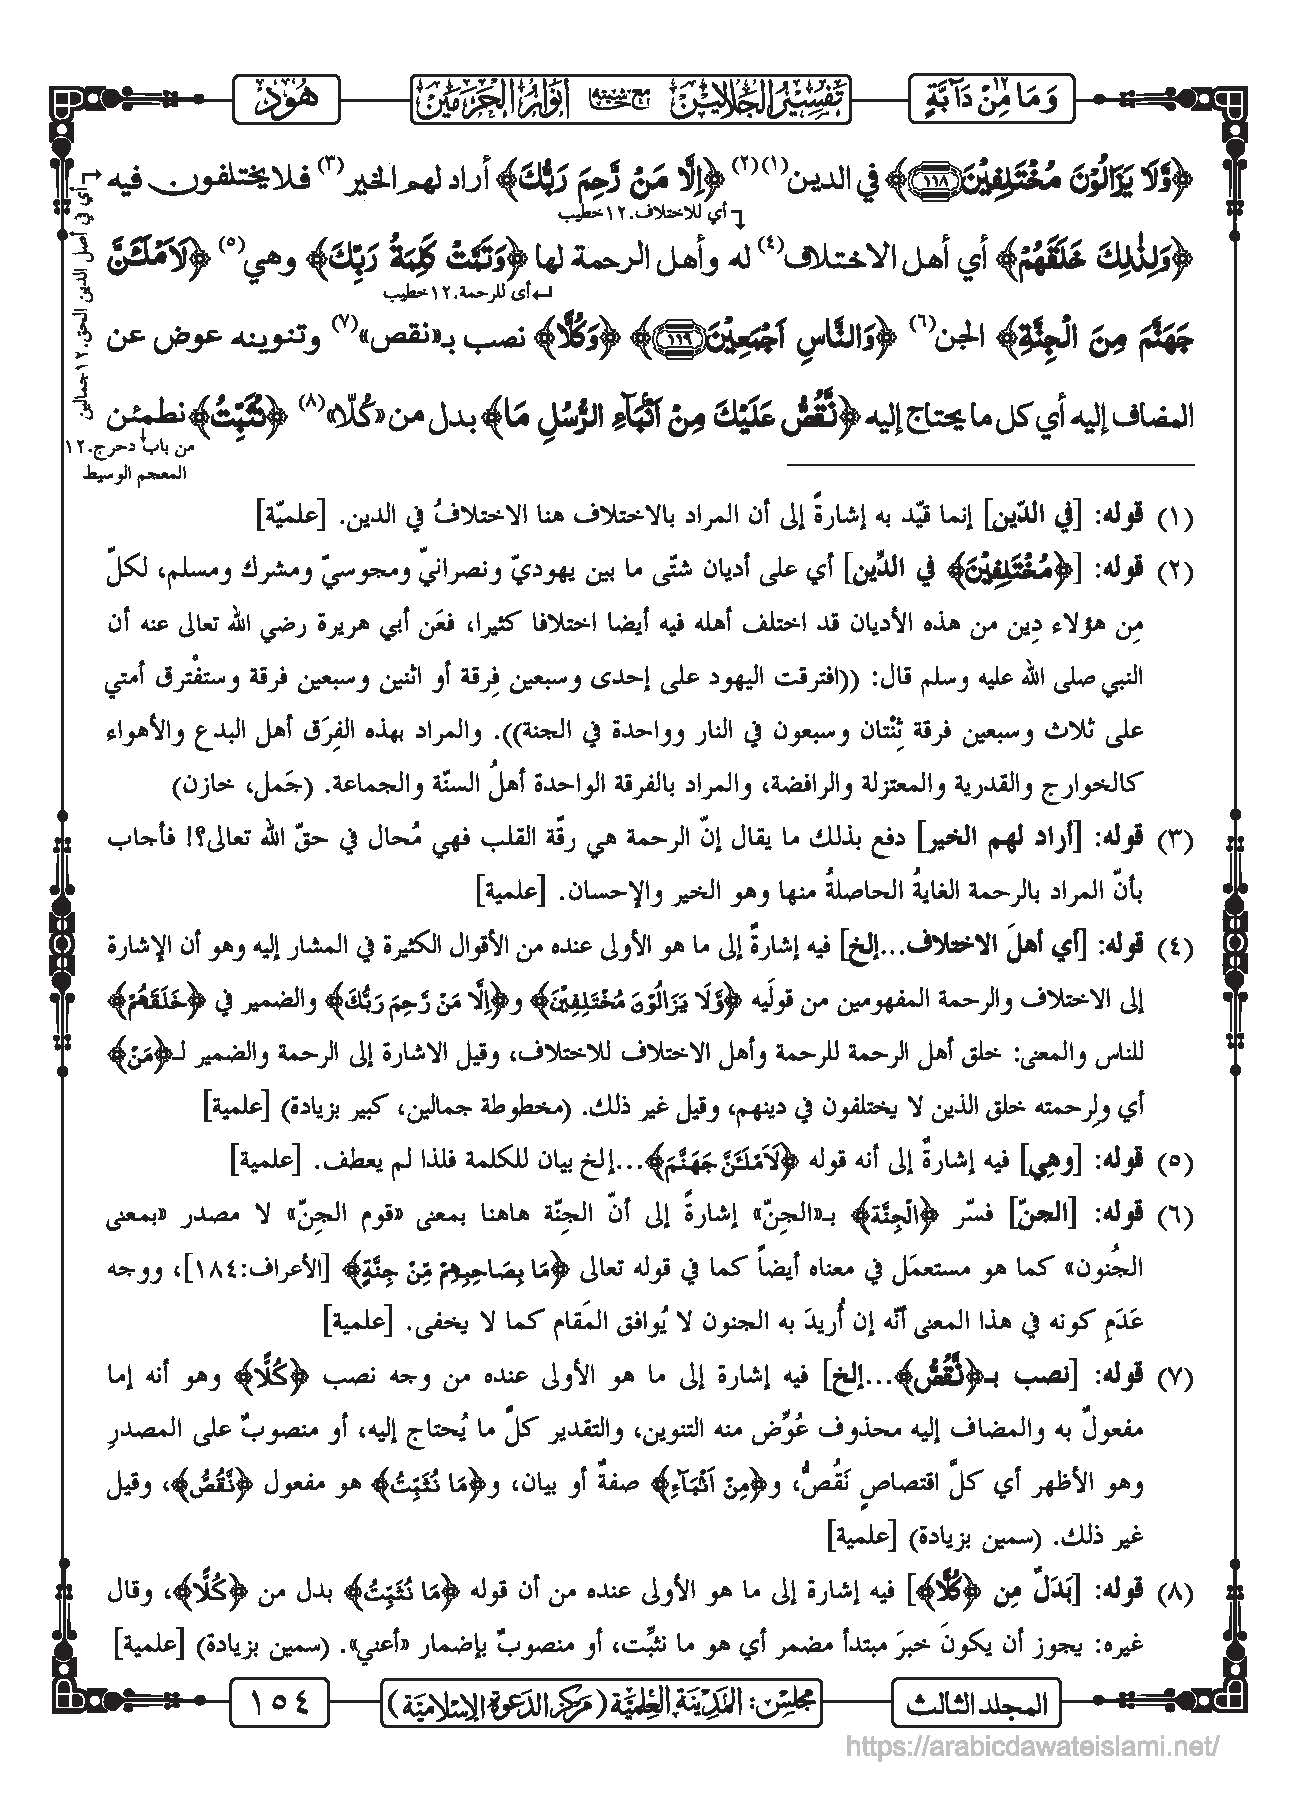 وَمَا مِنْ دَآبَّةٍ ١٢
تَفْسِيْرُ الْجَلَالَيْن مع حاشيته أَنْوَارُ الْحَرَمَيْن
هُوْد
﴿وَّلَا يَزَالُوْنَ مُخْتَلِفِيْنَ ١١٨﴾ في الدين(١)(٢) ﴿اِلَّا مَنْ رَّحِمَ رَبُّكَ﴾ أراد لهم الخير(٣) فلا يختلفون فيه
أي للاختلاف.١٢خطيب
﴿وَلِذٰلِكَ خَلَقَهُمْ﴾ أي أهل الاختلاف(٤) له وأهل الرحمة لها ﴿وَتَمَّتْ كَلِمَةُ رَبِّكَ﴾ وهي(٥) ﴿لَاَمْلَـَٔنَّ
أى للرحمة.١٢خطيب
أي في أصل الدين الحق.١٢جمالين
جَهَنَّمَ مِنَ الْجِنَّةِ﴾ الجن(٦) ﴿وَالنَّاسِ اَجْمَعِيْنَ ١١٩﴾ ﴿وَكُلًّا﴾ نصب بـ«نقص»(٧) وتنوينه عوض عن
المضاف إليه أي كل ما يحتاج إليه ﴿نَّقُصُّ عَلَيْكَ مِنْ اَنْۢبَآءِ الرُّسُلِ مَا﴾ بدل من «كُلّا»(٨) ﴿نُثَبِّتُ﴾ نطمئن
من باب دحرج.١٢
المعجم الوسيط
(١) قوله: [في الدّين] إنما قيّد به إشارةً إلى أن المراد بالاختلاف هنا الاختلافُ في الدين. [علميّة]
(٢) قوله: [﴿مُخْتَلِفِيْنَ﴾ في الدِّين] أي على أديان شتّى ما بين يهوديّ ونصرانيّ ومجوسيّ ومشرك ومسلم، لكلّ
مِن هؤلاء دِين من هذه الأديان قد اختلف أهله فيه أيضا اختلافا كثيرا، فعَن أبي هريرة رضي الله تعالى عنه أن
النبي صلى الله عليه وسلم قال: ((افترقت اليهود على إحدى وسبعين فِرقة أو اثنين وسبعين فرقة وستفْترق أمتي
على ثلاث وسبعين فرقة ثِنْتان وسبعون في النار وواحدة في الجنة)). والمراد بهذه الفِرَق أهل البدع والأهواء
كالخوارج والقدرية والمعتزلة والرافضة، والمراد بالفرقة الواحدة أهلُ السنّة والجماعة. (جَمل، خازن)
(٣) قوله: [أراد لهم الخير] دفع بذلك ما يقال إنّ الرحمة هي رقّة القلب فهي مُحال في حقّ الله تعالى؟! فأجاب
بأنّ المراد بالرحمة الغايةُ الحاصلةُ منها وهو الخير والإحسان. [علمية]
(٤) قوله: [أي أهلَ الاختلاف...إلخ] فيه إشارةٌ إلى ما هو الأولى عنده من الأقوال الكثيرة في المشار إليه وهو أن الإشارة
إلى الاختلاف والرحمة المفهومين من قولَيه ﴿وَّلَا يَزَالُوْنَ مُخْتَلِفِيْنَ﴾ و﴿اِلَّا مَنْ رَّحِمَ رَبُّكَ﴾ والضمير في ﴿خَلَقَهُمْ﴾
للناس والمعنى: خلق أهل الرحمة للرحمة وأهل الاختلاف للاختلاف، وقيل الاشارة إلى الرحمة والضمير لـ﴿مَنْ﴾
أي ولِرحمته خلق الذين لا يختلفون في دينهم، وقيل غير ذلك. (مخطوطة جمالين، كبير بزيادة) [علمية]
(٥) قوله: [وهِي] فيه إشارةٌ إلى أنه قوله ﴿لَاَمْلَـَٔنَّ جَهَنَّمَ﴾...إلخ بيان للكلمة فلذا لم يعطف. [علمية]
(٦) قوله: [الجنّ] فسّر ﴿الْجِنَّة﴾ بـ«الجنّ» إشارةً إلى أنّ الجنّة هاهنا بمعنى «قوم الجنّ» لا مصدر «بمعنى
الجُنون» كما هو مستعمَل في معناه أيضاً كما في قوله تعالى ﴿مَا بِصَاحِبِهِمْ مِّنْ جِنَّةٍ﴾ [الأعراف:١٨٤]، ووجه
عَدَمِ كونه في هذا المعنى أنّه إن أُريدَ به الجنون لا يُوافق المَقام كما لا يخفى. [علمية]
(٧) قوله: [نصب بـ﴿نَّقُصُّ﴾...إلخ] فيه إشارة إلى ما هو الأولى عنده من وجه نصب ﴿كُلًّا﴾ وهو أنه إما
مفعولٌ به والمضاف إليه محذوف عُوِّض منه التنوين، والتقدير كلَّ ما يُحتاج إليه، أو منصوبٌ على المصدرِ
وهو الأظهر أي كلَّ اقتصاصٍ نَقُصُّ، و﴿مِنْ اَنْۢبَآءِ﴾ صفةٌ أو بيان، و﴿مَا نُثَبِّتُ﴾ هو مفعول ﴿نَّقُصُّ﴾، وقيل
غير ذلك. (سمين بزيادة) [علمية]
(٨) قوله: [بَدَلٌ مِن ﴿كُلًّا﴾] فيه إشارة إلى ما هو الأولى عنده من أن قوله ﴿مَا نُثَبِّتُ﴾ بدل من ﴿كُلًّا﴾، وقال
غيره: يجوز أن يكونَ خبرَ مبتدأ مضمر أي هو ما نثبِّت، أو منصوبٌ بإضمار «أعني». (سمين بزيادة) [علمية]
المجلد الثالث
مجلس: المدينة العلمية (مركز الدعوة الإسلامية)
١٥٤
https://arabicdawateislami.net/